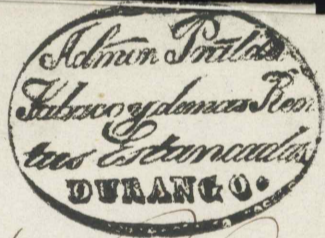 Admon Pral de
Tabaco y demas Ren
tas Estancadas
DURANGO.